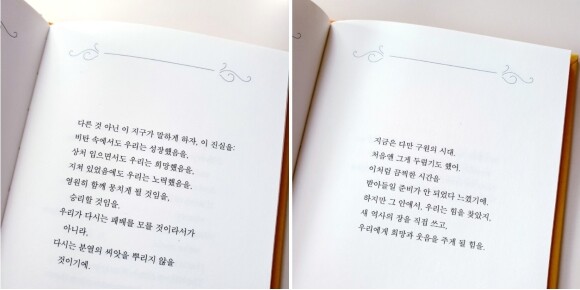 다른 것 아닌 이 지구가 말하게 하자, 이 진실을:
비탄 속에서도 우리는 성장했음을,
상처 입으면서도 우리는 희망했음을,
지쳐 있었음에도 우리는 노력했음을,
영원히 함께 뭉치게 될 것임을,
승리할 것임을.
우리가 다시는 패배를 모를 것이라서가
아니라,
다시는 분열의 씨앗을 뿌리지 않을
것이기에.
지금은 다만 구원의 시대.
처음엔 그게 두렵기도 했어.
이처럼 끔찍한 시간을
받아들일 준비가 안 되었다 느꼈기에.
하지만 그 안에서, 우리는 힘을 찾았지.
새 역사의 장을 직접 쓰고,
우리에게 희망과 웃음을 주게 될 힘을.